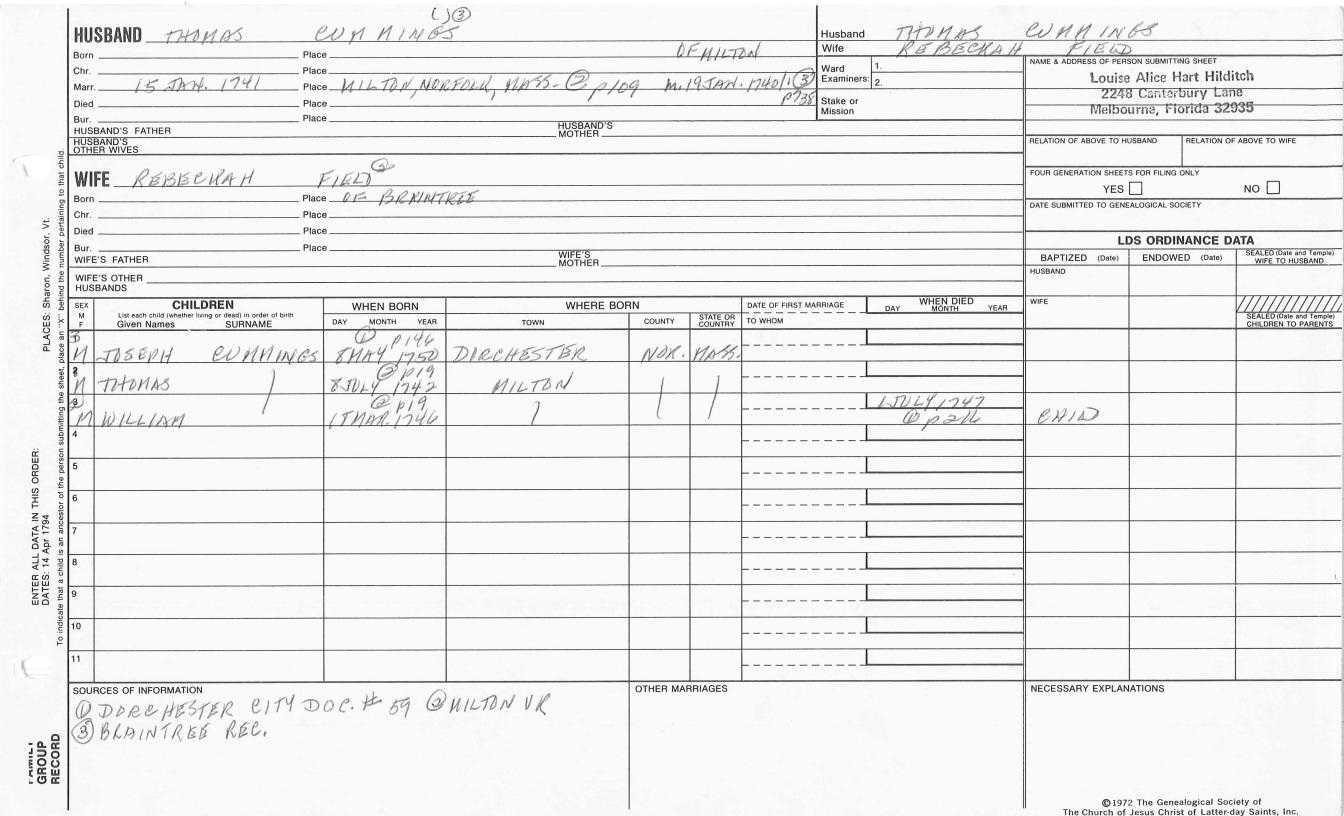 HUSBAND THOMAS CUMMINGS ③
Born Place OF MILTON
Chr. Place
Marr. 15 JAN. 1741 Place MILTON, NORFOLK, MASS. ② p109 M. 19 JAN. 1740/1 ③ p738
Died Place
Bur. Place
HUSBAND'S FATHER HUSBAND'S MOTHER
HUSBAND'S OTHER WIVES
Husband THOMAS CUMMINGS
Wife REBECKAH FIELD
Ward Examiners: 1.
2.
Stake or Mission
NAME & ADDRESS OF PERSON SUBMITTING SHEET
Louise Alice Hart Hilditch
2248 Canterbury Lane
Melbourne, Florida 32935
RELATION OF ABOVE TO HUSBAND RELATION OF ABOVE TO WIFE
FOUR GENERATION SHEETS FOR FILING ONLY
YES NO
DATE SUBMITTED TO GENEALOGICAL SOCIETY
WIFE REBECKAH FIELD ③
Born Place OF BRAINTREE
Chr. Place
Died Place
Bur. Place
WIFE'S FATHER WIFE'S MOTHER
WIFE'S OTHER HUSBANDS
LDS ORDINANCE DATA
BAPTIZED (Date) ENDOWED (Date) SEALED (Date and Temple) WIFE TO HUSBAND
HUSBAND
WIFE
SEALED (Date and Temple) CHILDREN TO PARENTS
SEX M F
CHILDREN
List each child (whether living or dead) in order of birth
Given Names SURNAME
WHEN BORN
DAY MONTH YEAR
WHERE BORN
TOWN COUNTY STATE OR COUNTRY
DATE OF FIRST MARRIAGE
TO WHOM
WHEN DIED
DAY MONTH YEAR
① p146
M JOSEPH CUMMINGS 8 MAY 1750 DORCHESTER NOR. MASS.
2 ② p19
M THOMAS 8 JULY 1742 MILTON
3 ② p19 1 JULY 1747
M WILLIAM 15 MAR. 1746 CHILD
4
5
6
7
8
9
10
11
SOURCES OF INFORMATION
① DORCHESTER CITY DOC. # 59 ② MILTON VR
③ BRAINTREE REC.
OTHER MARRIAGES
NECESSARY EXPLANATIONS
©1972 The Genealogical Society of
The Church of Jesus Christ of Latter-day Saints, Inc.
ENTER ALL DATA IN THIS ORDER:
DATES: 14 Apr 1794 PLACES: Sharon, Windsor, Vt.
To indicate that a child is an ancestor of the person submitting the sheet, place an "X" behind the number pertaining to that child.
FAMILY
GROUP
RECORD